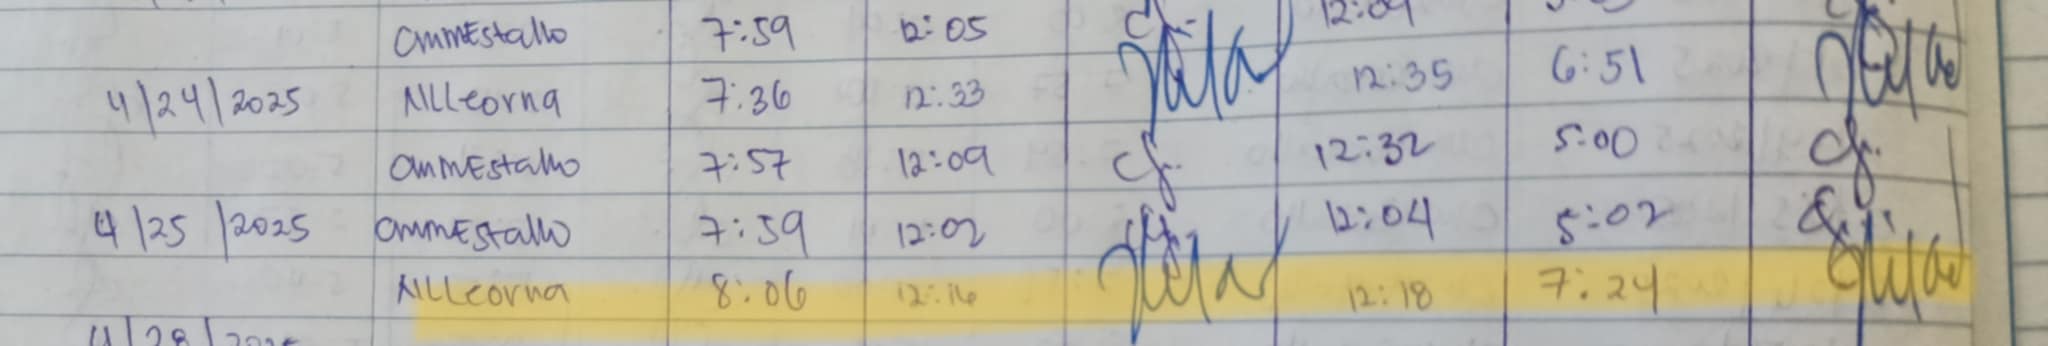 CMMEstallo 7:59 12:05 12:09
4/24/2025 NLLeorna 7:36 12:33 12:35 6:51
CMMEstallo 7:57 12:09 12:32 5:00
4/25/2025 CMMEstallo 7:59 12:02 12:04 5:02
NLLeorna 8:06 12:16 12:18 7:24
4/28/2025